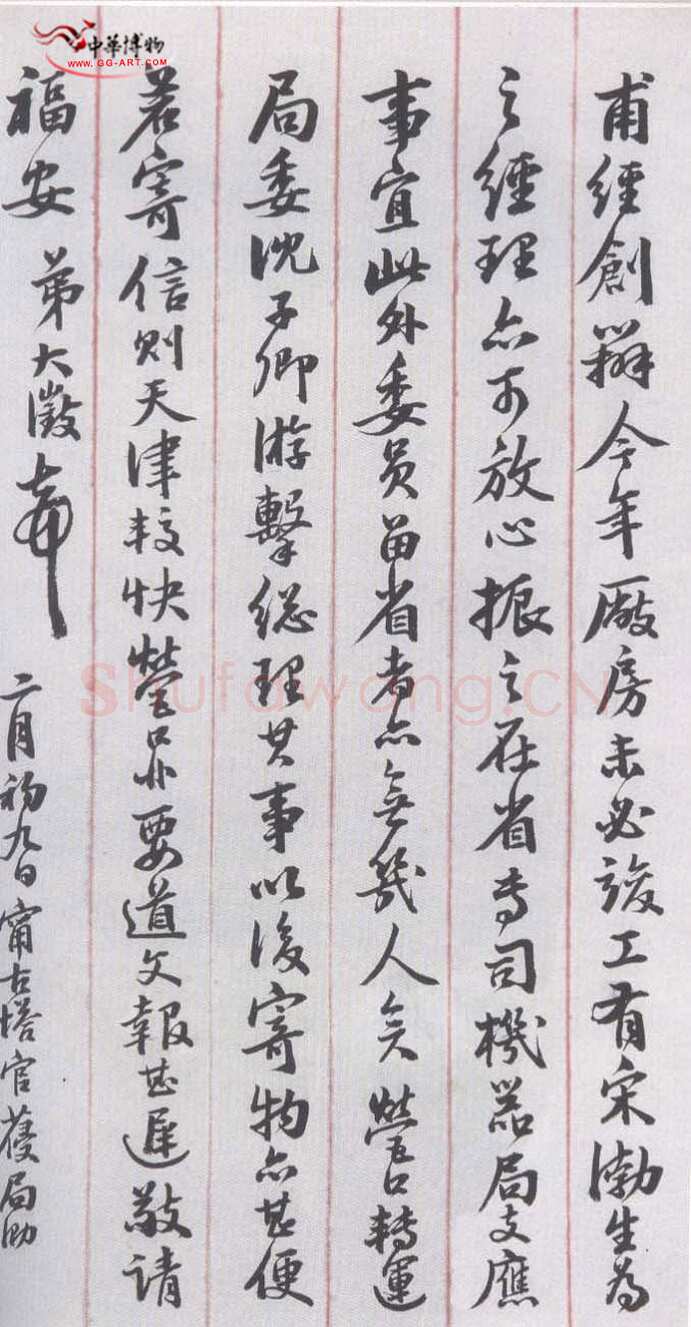 甫經創辦今年廠房未必竣工有宋渤生為
之經理亦可放心振之在省專司機器局支應
事宜此外委員留省者亦無幾人矣營口轉運
局委沈子卿游擊總理其事以後寄物亦甚便
若寄信則天津較快營口非要道文報甚遲敬請
福安 弟大澂
二月初九日甯古塔官
中華博物
www.GG-ART.COM
shufawang.CN